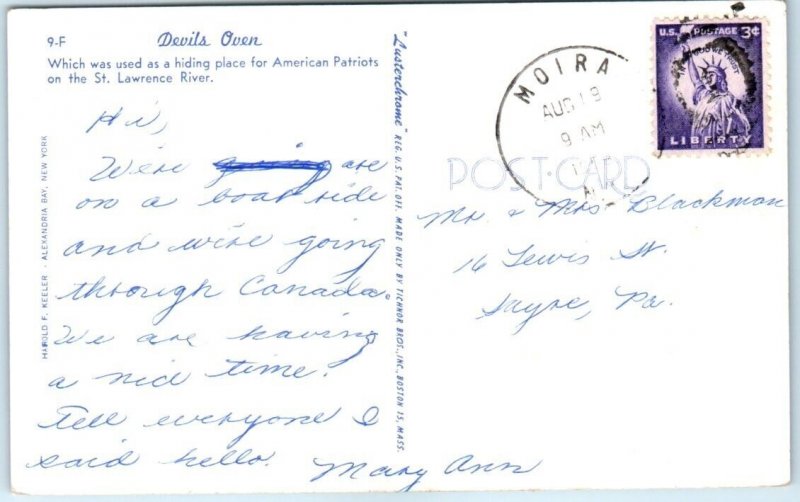 9-F Devils Oven
Which was used as a hiding place for American Patriots
on the St. Lawrence River.
Hi,
We're are
on a boat ride
and we're going
through Canada.
We are having
a nice time.
Tell everyone I
said hello.
Mary Ann
HAROLD F. KEELER - ALEXANDRIA BAY, NEW YORK
"Lusterchrome" REG. U.S. PAT. OFF. MADE ONLY BY TICHNOR BROS., INC., BOSTON 15, MASS.
MOIRA
AUG 19
9 AM
U.S. POSTAGE 3¢
IN GOD WE TRUST
LIBERTY
POST CARD
Mr. & Mrs. Blackman
16 Lewis St.
Sayre, Pa.